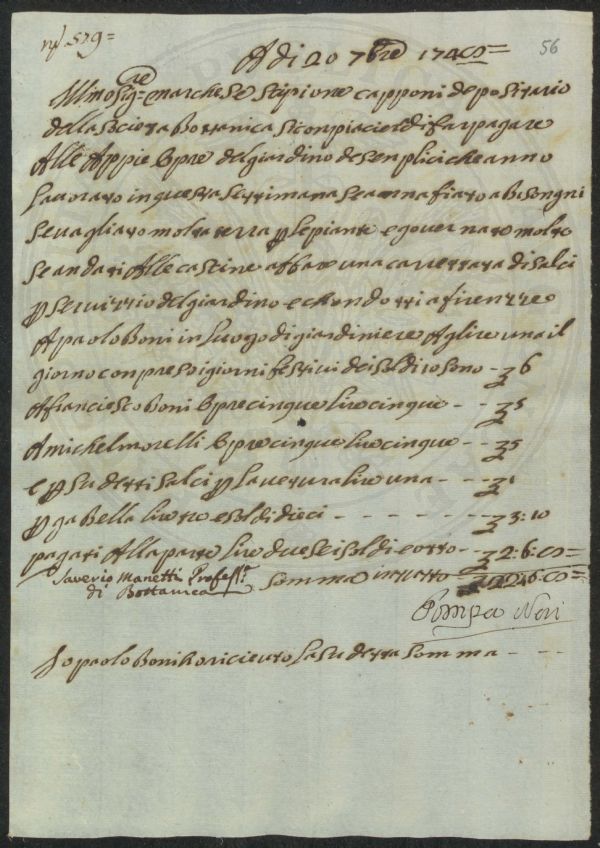 nº 579=
56
A di 20 7bre 1748=
Illmo Sigre marchese Scipione capponi depositario
della Societa Bottanica si conpiacierà di far pagare
Alle Appie Opre del giardino de senplici che anno
lavorato in questa settimana se annafiato a Bisongni
se vagliato molta terra p le piante e governato molto
se andati Alle cascine affare una carrettata di salci
p servizzio del giardino e chondotti a firenzze
A paolo Boni in luogo di giardiniere A lire una il
giorno conpreso i giorni festivi dei soldi 10 sono - 6
A franciesco Boni Opre cinque lire cinque - - 5
A michel morelli Opre cinque lire cinque - - 5
e p su detti salci p la vetura lire una - - - - 1
p ga Bella lire tre e soldi dieci - - - - - - - 3:10
pagati Alla parte lire due sei soldi e otto - - 2:6:8=
Saverio Manetti Profess.r
di Bottanica
Somma in tutto
Pompeo Neri
Io paolo Boni ho ricieuto la su detta somma - - -